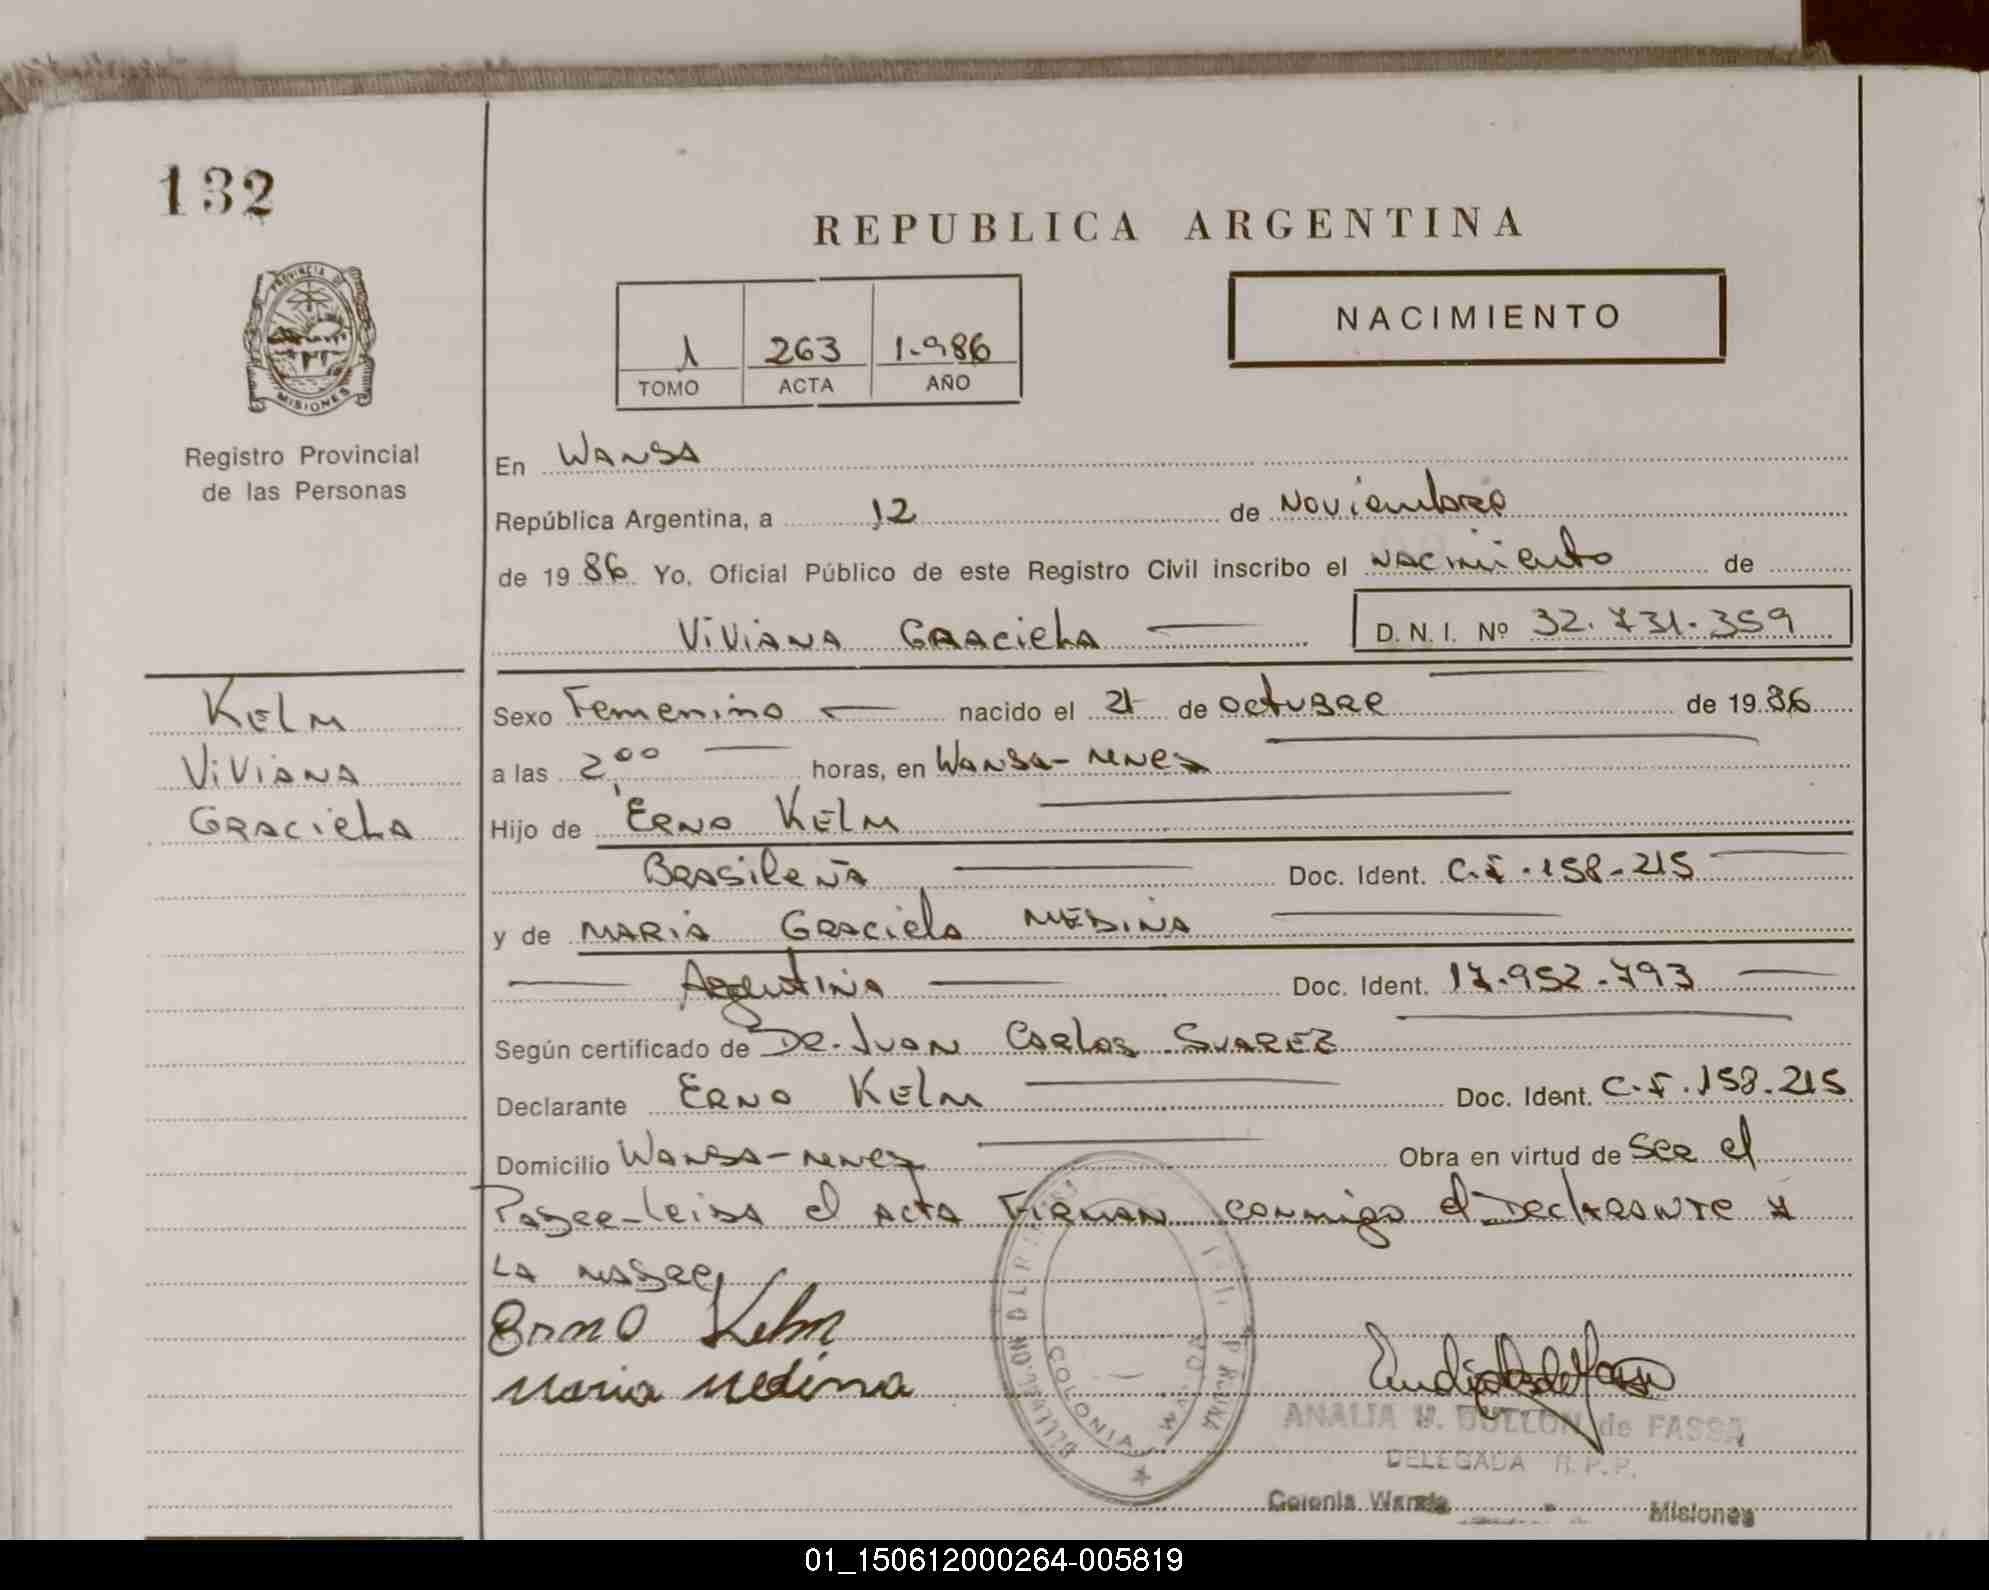 132
REPUBLICA ARGENTINA
PROVINCIA DE
MISIONES
Registro Provincial
de las Personas
1 263 1.986
TOMO ACTA AÑO
NACIMIENTO
En Wanda
República Argentina, a 12 de Noviembre
de 1986 Yo, Oficial Público de este Registro Civil inscribo el nacimiento de
Viviana Graciela D. N. I. Nº 32.731.359
Kelm
Viviana
Graciela
Sexo Femenino nacido el 21 de octubre de 1986
a las 2,00 horas, en Wanda-
Hijo de Erno Kelm
Brasileña Doc. Ident. C.I.158.215
y de Maria Graciela Medina
Argentina Doc. Ident. 17.952.793
Según certificado de Dr. Juan Carlos Suarez
Declarante Erno Kelm Doc. Ident. C.I.158.215
Domicilio Wanda- Obra en virtud de ser el
Padre-leida el acta Firman conmigo el Declarante y
la madre
Erno Kelm
Maria Medina
COLONIA WANDA
ANALIA de FASSA
DELEGADA R.P.P.
Colonia Wanda Misiones
01_150612000264-005819